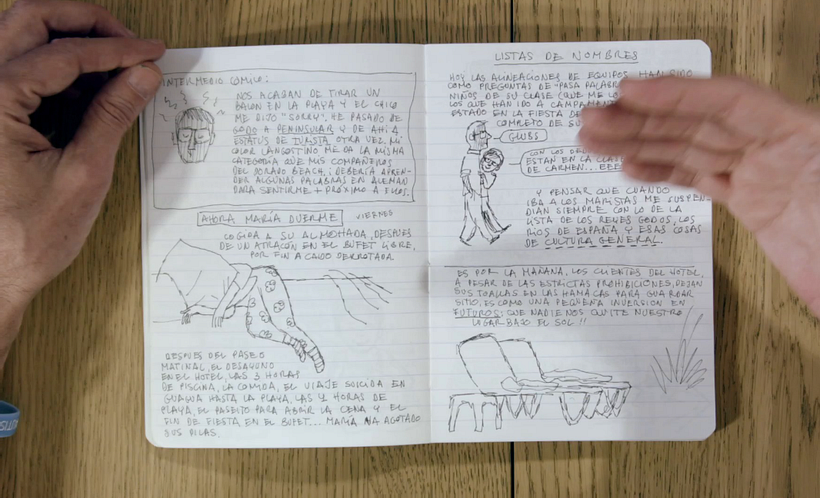 INTERMEDIO CÓMICO:
NOS ACABAN DE TIRAR UN
BALÓN EN LA PLAYA Y EL CHICO
ME DIJO "SORRY". HE PASADO DE
GODO A PENINSULAR Y DE AHÍ A
ESTATUS DE TURISTA OTRA VEZ. MI
COLOR LANGOSTINO ME DA LA MISMA
CATEGORÍA QUE MIS COMPAÑEROS
DEL DORADO BEACH. ¡DEBERÍA APREN-
DER ALGUNAS PALABRAS EN ALEMÁN
PARA SENTIRME + PRÓXIMO A ELLOS.
AHORA MARÍA DUERME VIERNES
COGIDA A SU ALMOHADA, DESPUÉS
DE UN ATRACÓN EN EL BUFET LIBRE,
POR FIN A CAÍDO DERROTADA
DESPUÉS DEL PASEO
MATINAL, EL DESAYUNO
EN EL HOTEL, LAS 3 HORAS
DE PISCINA, LA COMIDA, EL VIAJE SUICIDA EN
GUAGUA HASTA LA PLAYA, LAS 4 HORAS DE
PLAYA, EL PASEITO PARA ABRIR LA CENA Y EL
FIN DE FIESTA EN EL BUFET... MARÍA HA AGOTADO
SUS PILAS.
LISTAS DE NOMBRES
HOY LAS ALINEACIONES DE EQUIPOS HAN SIDO
COMO PREGUNTAS DE PASA PALABRA
NIÑOS DE SU CLASE (QUE ME
LOS QUE HAN IDO A CAMPAMEN
ESTADO EN LA FIESTA DE
COMPLETO DE SU
GLUBS
CON LOS DEL
ESTÁN EN LA CLASE
DE CARMEN...
Y PENSAR QUE CUANDO
IBA A LOS MARISTAS ME SUSPEN-
DÍAN SIEMPRE CON LO DE LA
LISTA DE LOS REYES GODOS, LOS
RÍOS DE ESPAÑA Y ESAS COSAS
DE CULTURA GENERAL.
ES POR LA MAÑANA, LOS CLIENTES DEL HOTEL,
A PESAR DE LAS ESTRICTAS PROHIBICIONES, DEJAN
SUS TOALLAS EN LAS HAMACAS PARA GUARDAR
SITIO. ES COMO UNA PEQUEÑA INVERSIÓN EN
FUTUROS: QUE NADIE NOS QUITE NUESTRO
LUGAR BAJO EL SOL!!